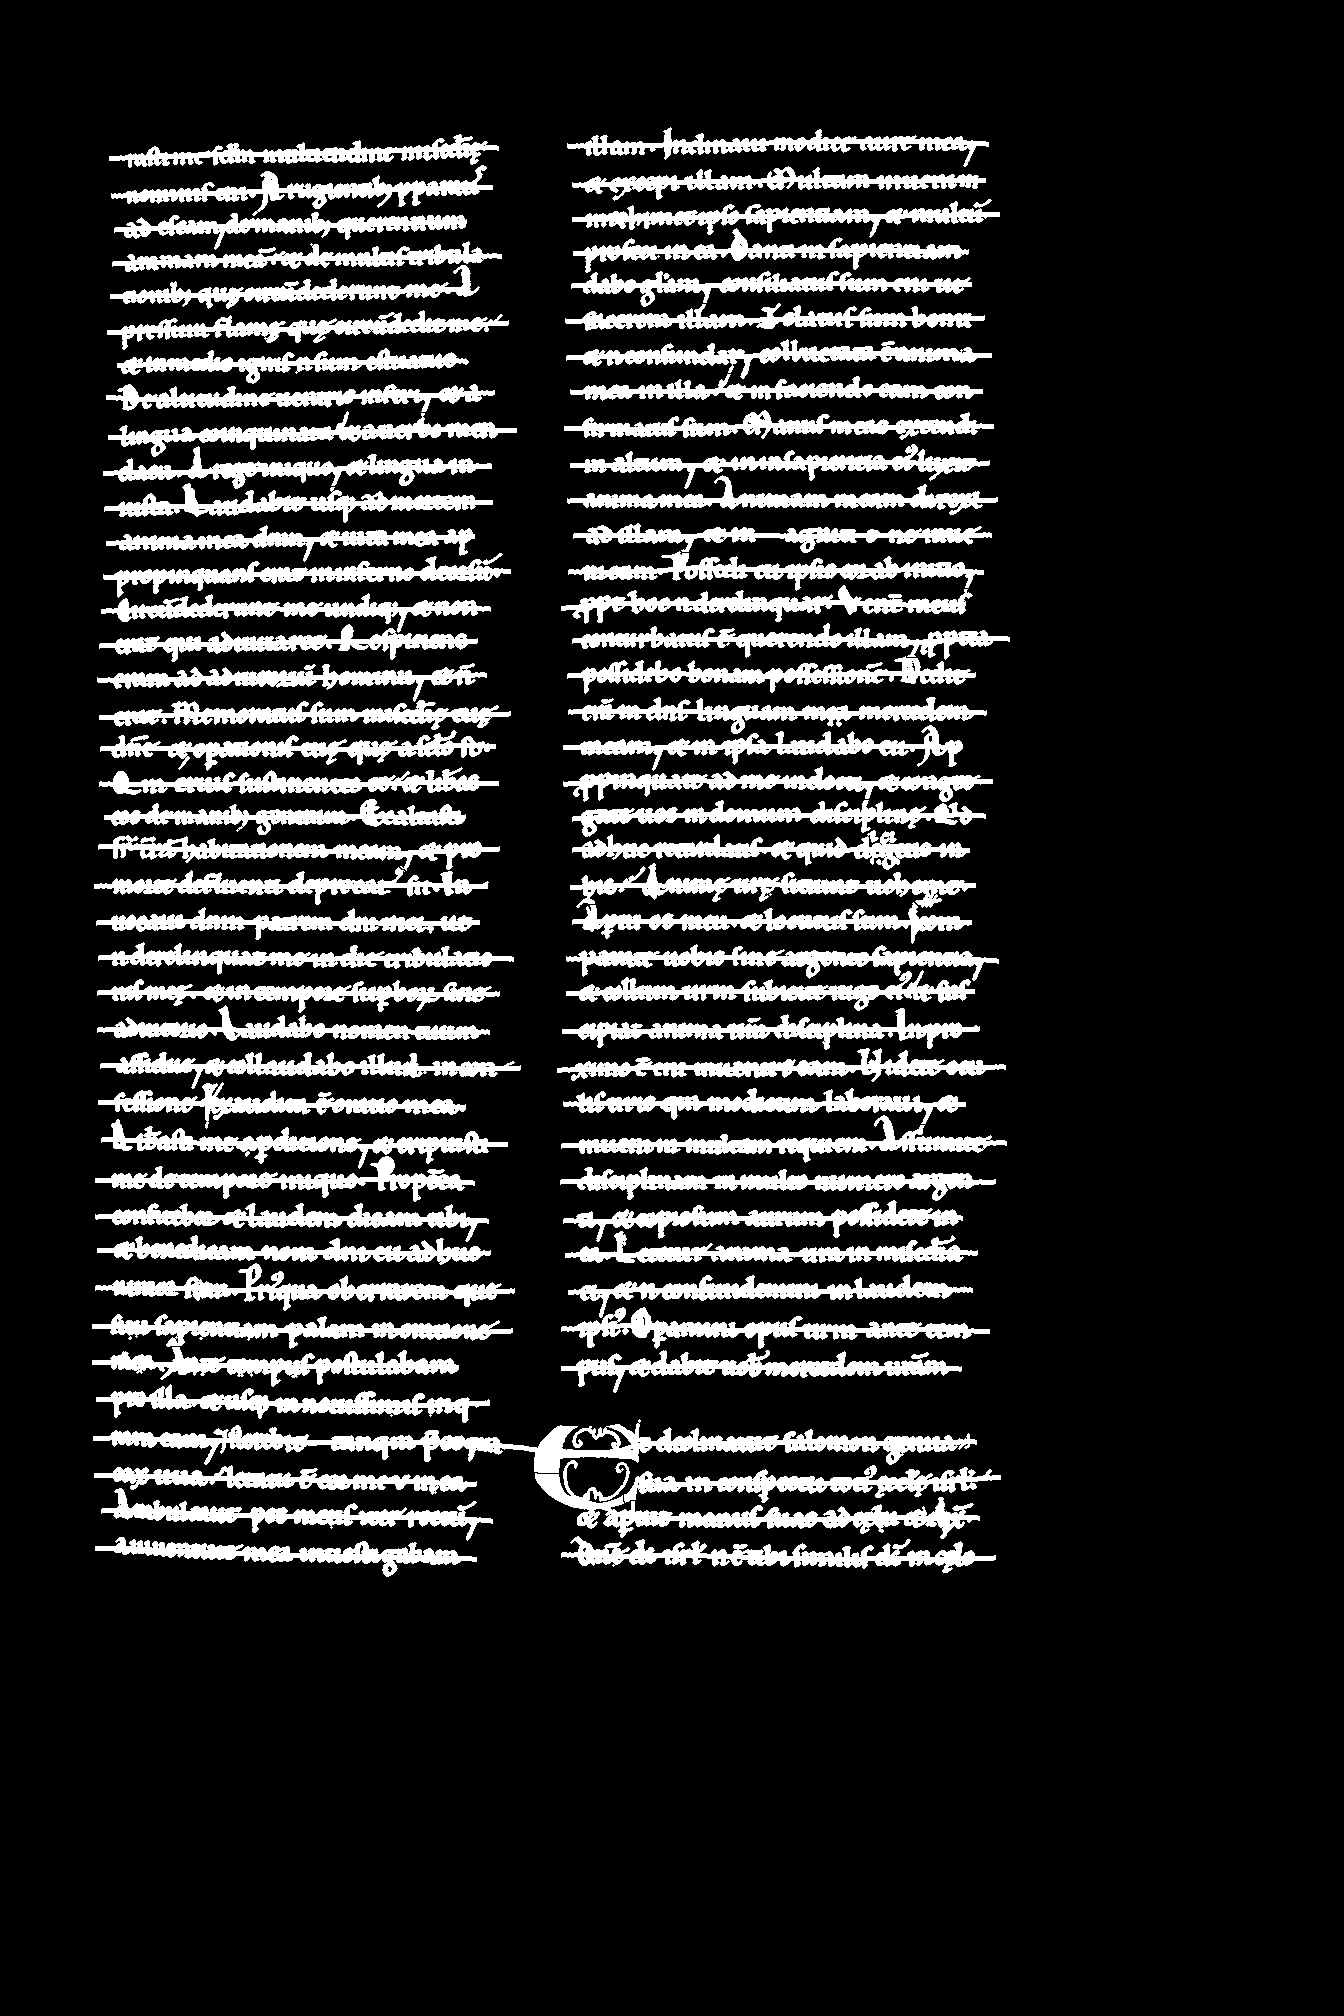 rasti me scdm multitudine miscdię
nominis tui A rugientib; pparatis
ad escam, de manib; querentium
animam meā & de multis tribula
tionib; quę circūdederunt me A
pressura flamę quę circūdedit me.
& in medio ignis n sum estuatus
De altitudine uentris inferi, & a
lingua coinquinata & a uerbo men
dacii A rege iniquo, & lingua in
iusta. Laudabit usq; ad mortem
anima mea dnm, & uita mea ap
propinquans erat in inferno deorsū.
Circūdederunt me undiq;, & non
erat qui adiuuaret. Respiciens
eram ad adiutoriū hominū, & ñ
erat. Memoratus sum miscdię tuę
dñe & opationis tuę quę a sclo st.
Qm eruis sustinentes te & libas
eos de manib; gentium Exaltasti
sr trā habitationem meam, & pro
morte defluenti deprecat sū. In
uocaui dnm patrem dni mei, ut
n derelinquat me in die tribulatio
nis meę & in tempore supboꝝ sine
adiutorio Laudabo nomen tuum
assidue, & collaudabo illud in con
fessione Exaudita ē oratio mea
Libasti me de pditione, & eripuisti
me de tempore iniquo. Proptea
confitebor & laudem dicam tibi,
& benedicam nomi dni cū adhuc
iunior sum Priusqua oberrarem que
siui sapientiam palam in oratione
mea. Ante tempus postulabam
pro illa & usq; in nouissimis inq
ram eam, & floruit tanquam pcox
uua Letatū ē cor meū in ea
Ambulauit pes meus iter rectū,
a iuuentute mea inuestigabam
illam. Inclinaui modice aure mea,
& excepi illam. Multam inueni in
meipso sapientiam, & multū
profeci in ea. Danti m sapientiam
dabo glam, consiliatus sum eni ut
facerem illam. Zelatus sum bonū
& n confundar, colluctata ē anima
mea in illa & in faciendo eam con
firmatus sum. Manus meas extendi
in altum, & in insapientia ei luxit
anima mea. Animam meam direxi
ad illam, & in agnitione inueni
eam Possedi cū ipsa cor ab initio,
ppt hoc n derelinquar Venter meus
conturbatus ē querendo illam, ppterea
possidebo bonam possessionē. Dedit
m dns linguam mercedem
meam, & in ipsa laudabo eū Ap
ppinquate ad me indocti, & congre
gate uos in domum disciplinę Quid
adhuc retardatis & quid dicitis in
his Animę urę sitiunt uehemt
Apui os meū & locutus sum Com
parate uobis sine argento sapientia,
& collum urm subicite iugo & sus
cipiat anima urā disciplina. In pro
ximo ē eni inuenire eam Videte ocu
lis uris qa modicum laboraui, &
inueni m multam requiem Assumite
disciplinam in multo numero argen
ti, & copiosum aurum possidete in
ea. Letetur anima ura in miscdia
ei, & n confundemini in laudem
ipsi. Opamini opus urm ante tem
pus, & dabit uob mercedem urām
Et declinauit salomon genua
sua in conspectu toti ecclę isrl
& apuit manus suas ad cęlū & dix
Dne ds isrl n ē tibi similis ds in cęlo